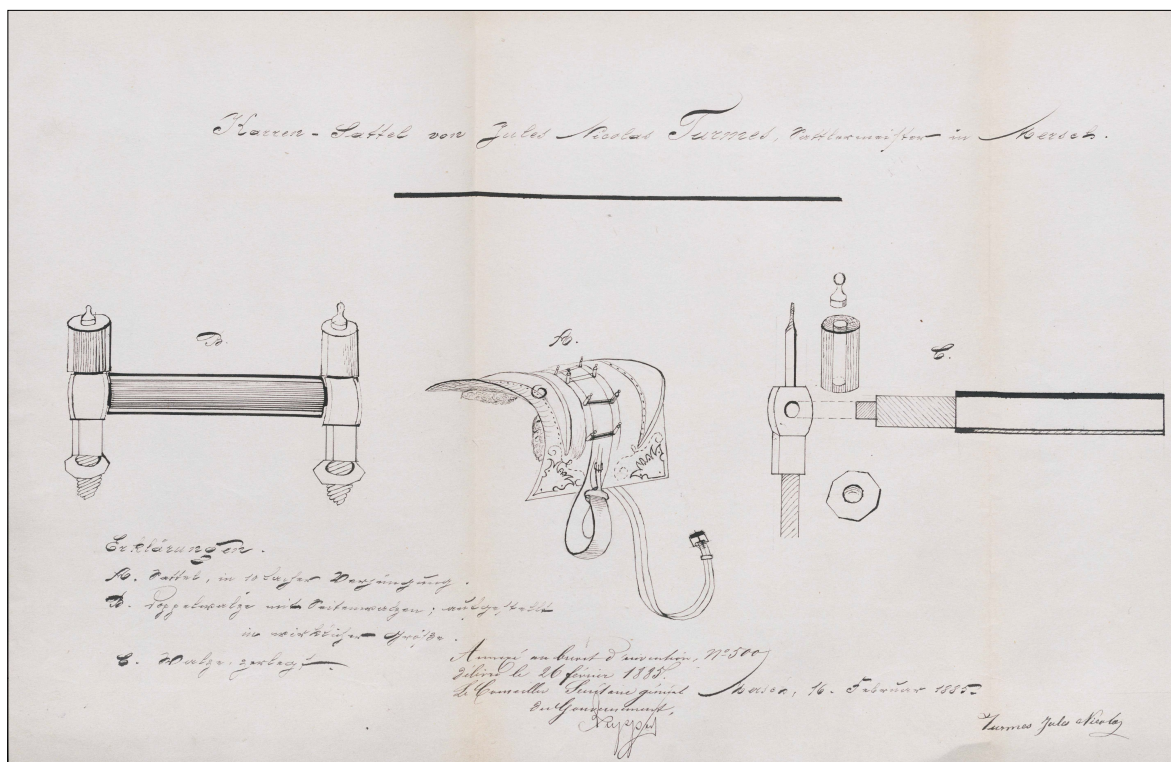 Karren-Sattel von Jules Nicolas Turmes, Sattlermeister in Mersch.
B.
A.
C.
Erklärungen.
A. Sattel, in 10 facher Verjüngung.
B. Doppelwalze mit Seitenwalzen; ausgestellt
in wirklicher Größe.
C. Walze, zerlegt.
Annexé au brevet d'invention, No 500
délivré le 26 février 1885.
Le Conseiller Secrétaire général
du Gouvernement,
Mersch, 16. Februar 1885.
Turmes Jules Nicolas